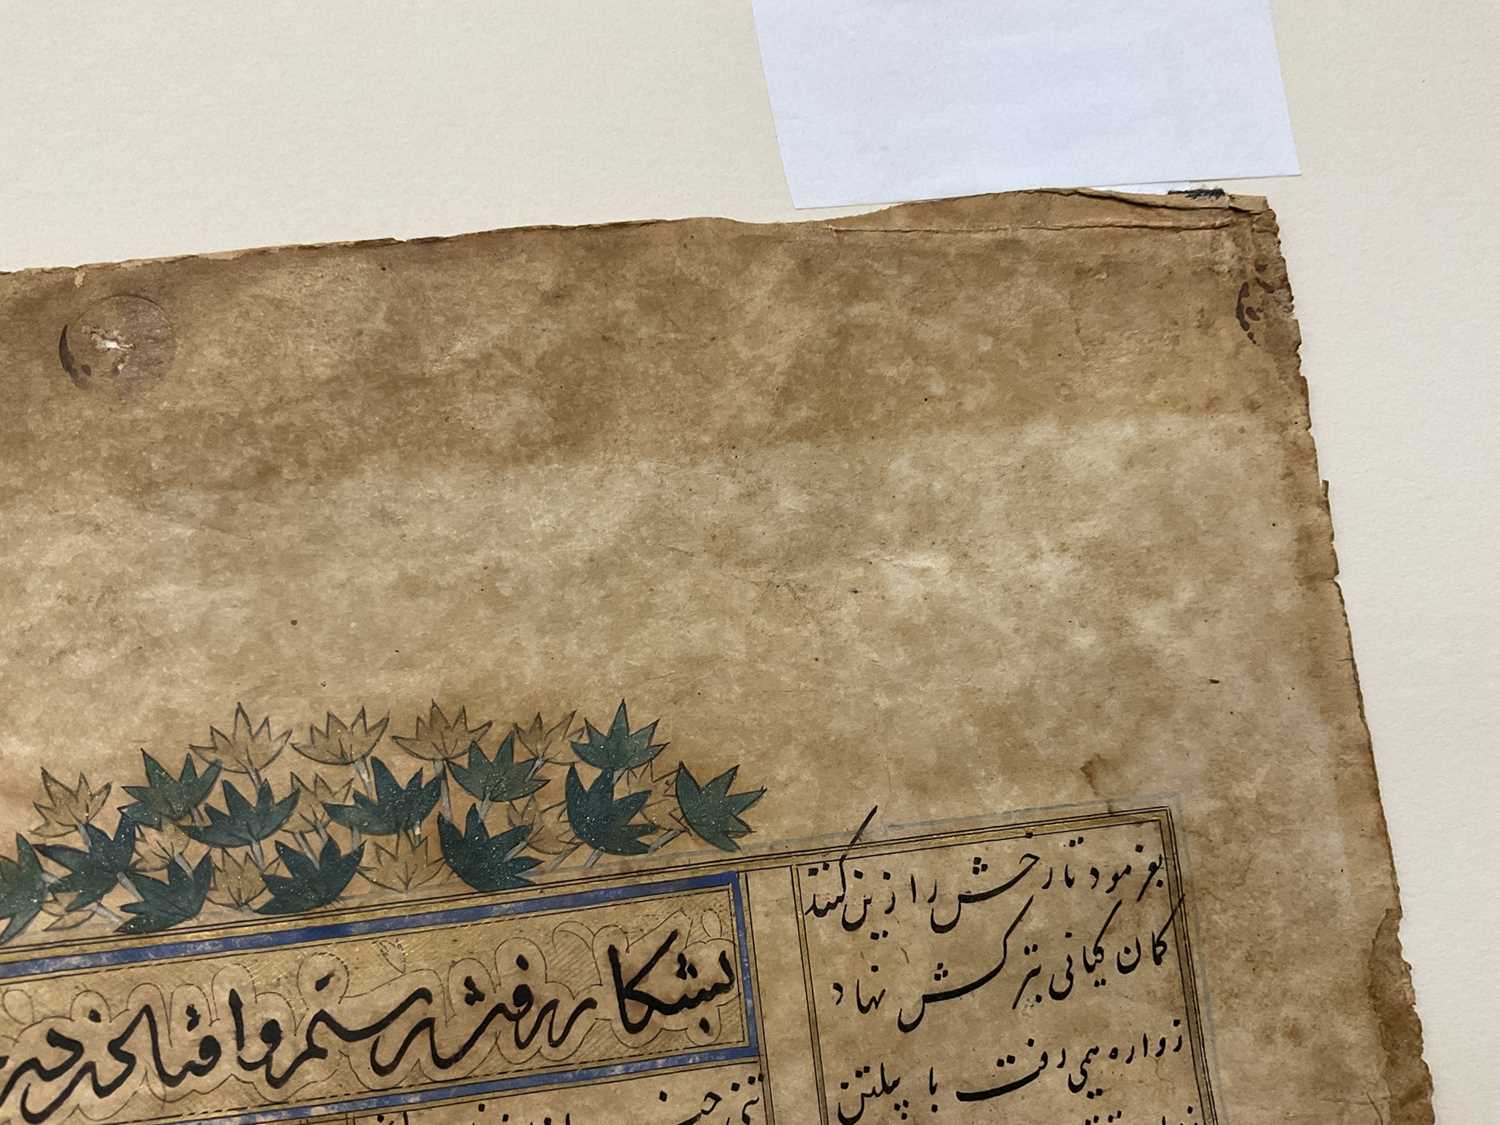 بفرمود تا رخش را زین کنند
کمان کیانی بترکش نهاد
زواره همی رفت با پیلتن
بشکار رفتن رستم و افتادن در